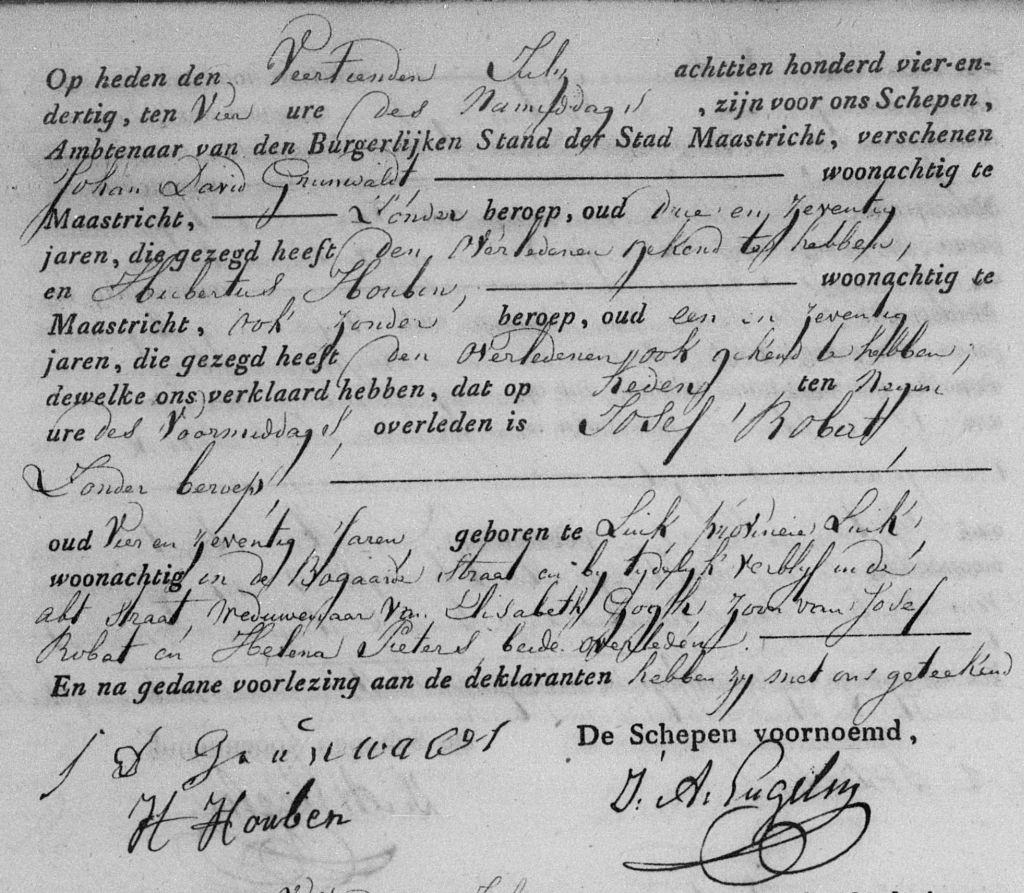 Op heden den Veertienden July achttien honderd vier-en-
dertig, ten Vier ure des Namiddags, zijn voor ons Schepen,
Ambtenaar van den Burgerlijken Stand der Stad Maastricht, verschenen
Johan David Grunwaldt, woonachtig te
Maastricht, Zonder beroep, oud drie en zeventig
jaren, die gezegd heeft den Overledenen gekend te hebben,
en Hubertus Houben, woonachtig te
Maastricht, ook zonder beroep, oud een en zeventig
jaren, die gezegd heeft den Overledenen ook gekend te hebben,
dewelke ons verklaard hebben, dat op heden ten Negen
ure des Voormiddags, overleden is Josef Robert,
Zonder beroep,
oud Vier en zeventig Jaren geboren te Luik, provincie Luik,
woonachtig in de Bogaarde straat en by tydelyk verblyf in de
abt straat, Weduwenaar van Elisabeth Zoon van Josef
Robat en Helena Pieters, beide overleden.
En na gedane voorlezing aan de deklaranten hebben zy met ons geteekend
De Schepen voornoemd,
J D Grünwaldt
H Houben